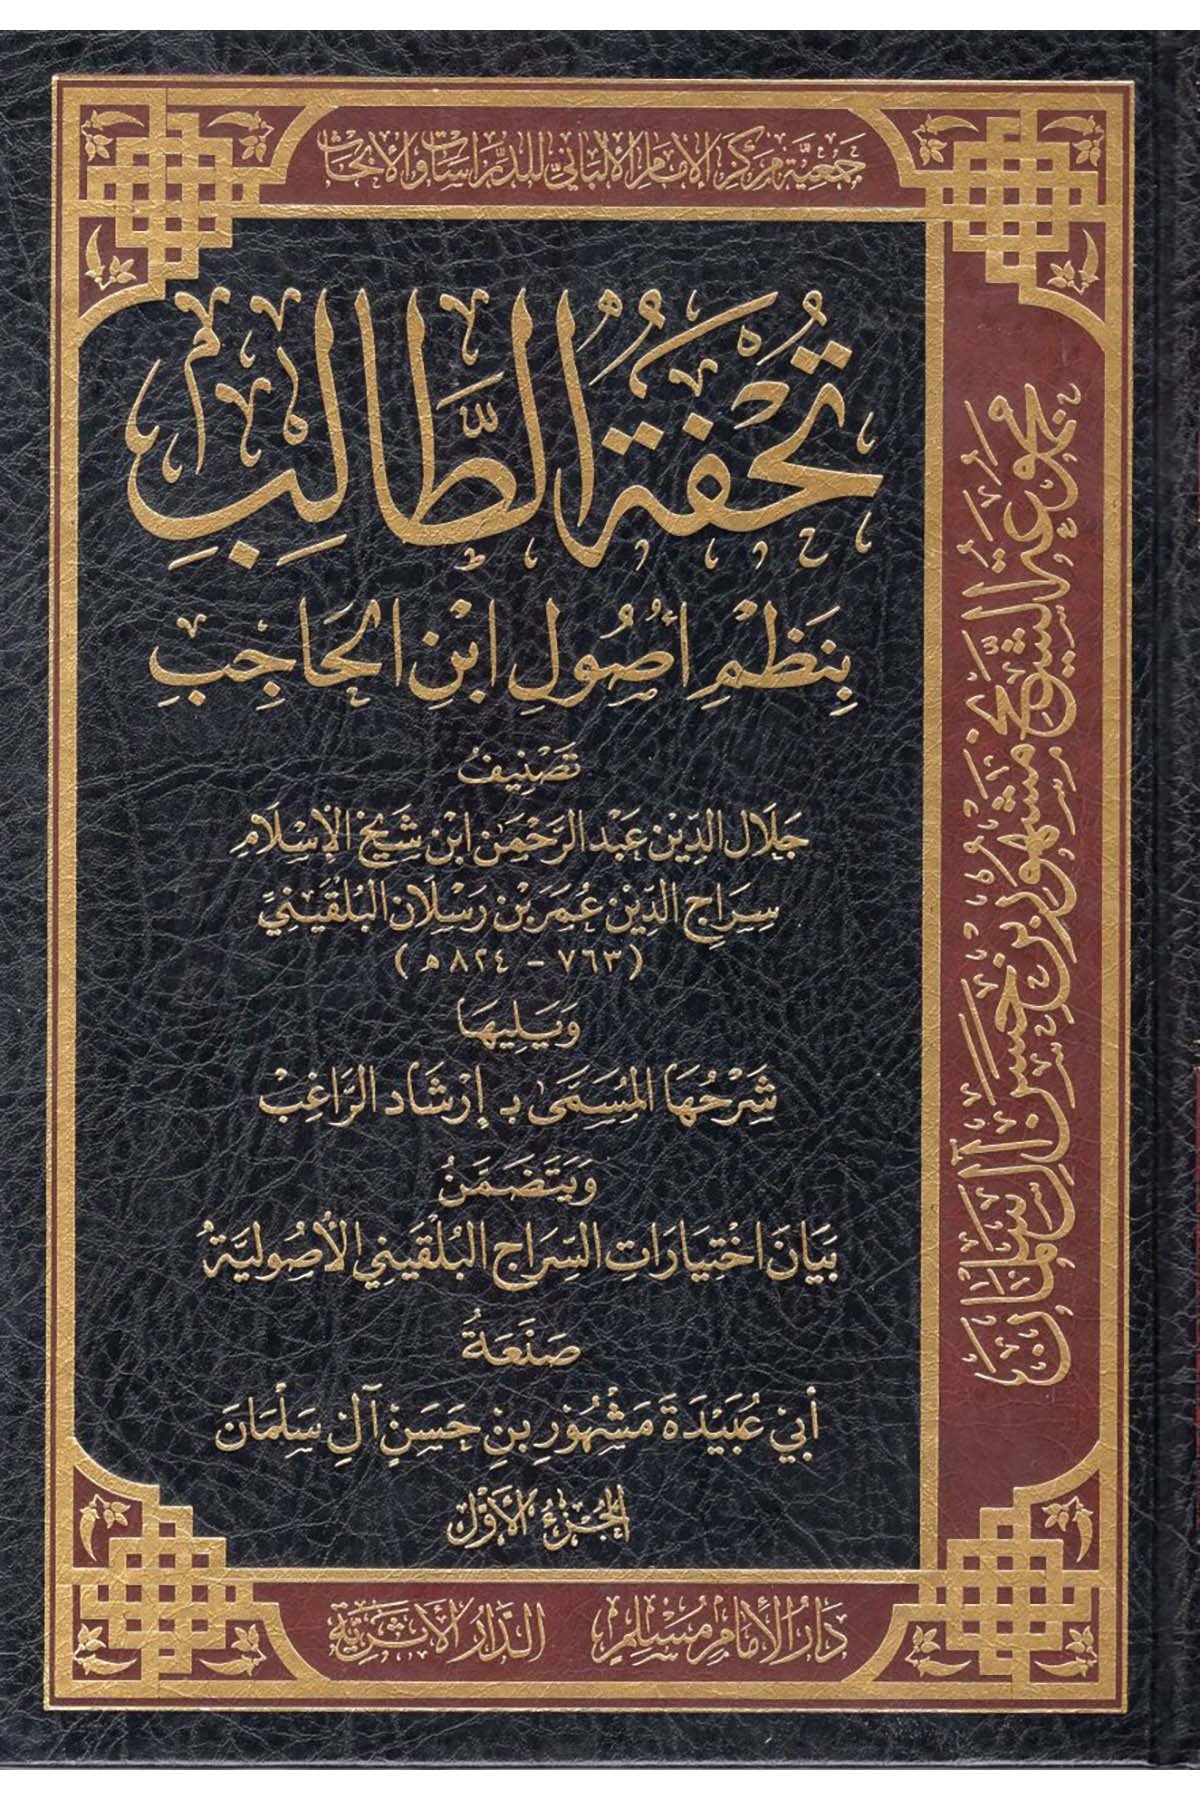 جمعية مركز الإمام الألباني للدراسات والأبحاث
تُحْفَةُ الطَّالِبِ
بِنَظْمِ أُصُولِ ابْنِ الْحَاجِبِ
تَصْنِيفُ
جَلَال الدِّين عَبْد الرَّحْمَن ابْن شَيْخ الإِسْلَام
سِرَاج الدِّين عُمَر بْن رَسْلَان البُلْقِينِيّ
(٧٦٣ - ٨٢٤ هـ)
وَيَلِيهَا
شَرْحُهَا المُسَمَّى بـ إِرْشَاد الرَّاغِبْ
وَيَتَضَمَّنُ
بَيَانَ اخْتِيَارَاتِ السِّرَاجِ البُلْقِينِي الأُصُولِيَّةُ
صَنَعَةُ
أَبِي عُبَيْدَةَ مَشْهُورِ بنِ حَسَن آلِ سَلْمَانَ
الجُزْءُ الأَوَّلُ
دَارُ الإِمَامِ مُسْلِمٍ الدَّارُ الأَثَرِيَّةُ
مجموعة الشيخ مشهور بن حسن آل سلمان